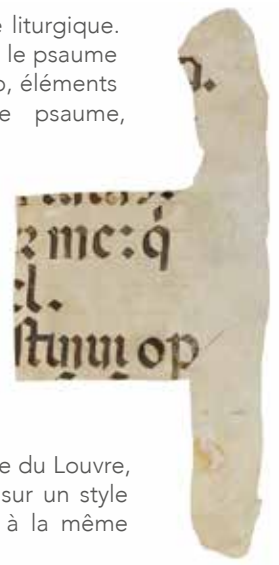 e liturgique.
le psaume
o, éléments
e psaume,
p.
me: q̇
el.
op
e du Louvre,
sur un style
à la même